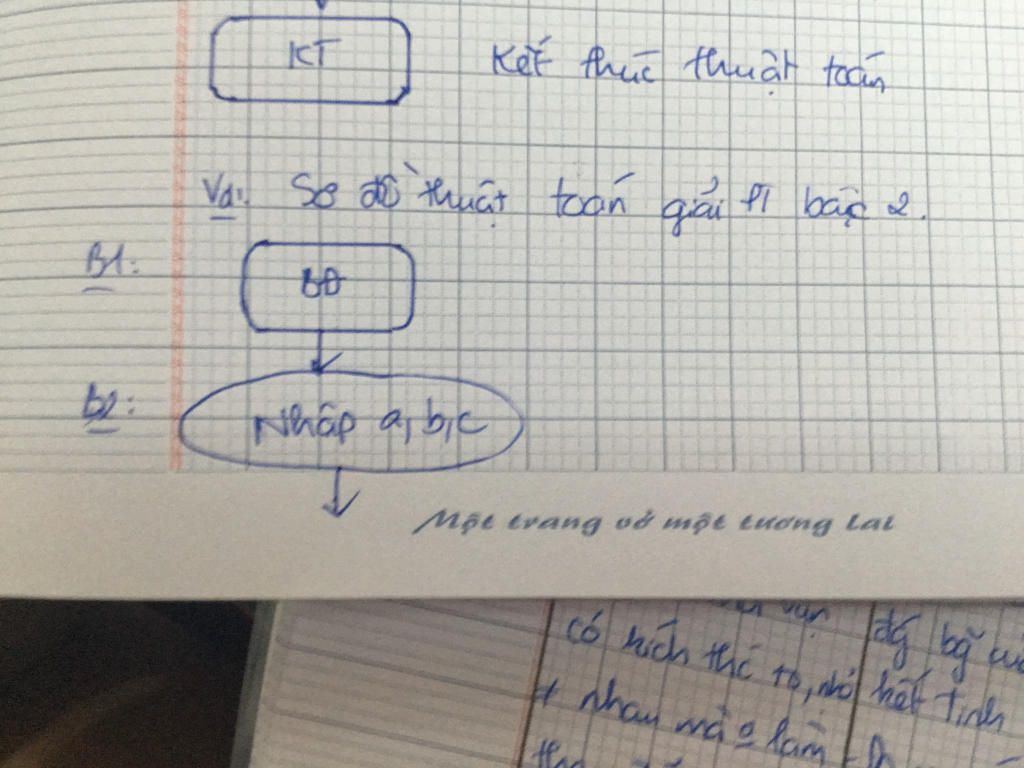 KT Kết thúc thuật toán
Vd: Sơ đồ thuật toán giải PT bậc 2.
B1: BĐ
B2: Nhập a, b, c
Một trang vở một tương lai
có kích thc to, nhỏ
+ nhau mà làm
hết tinh